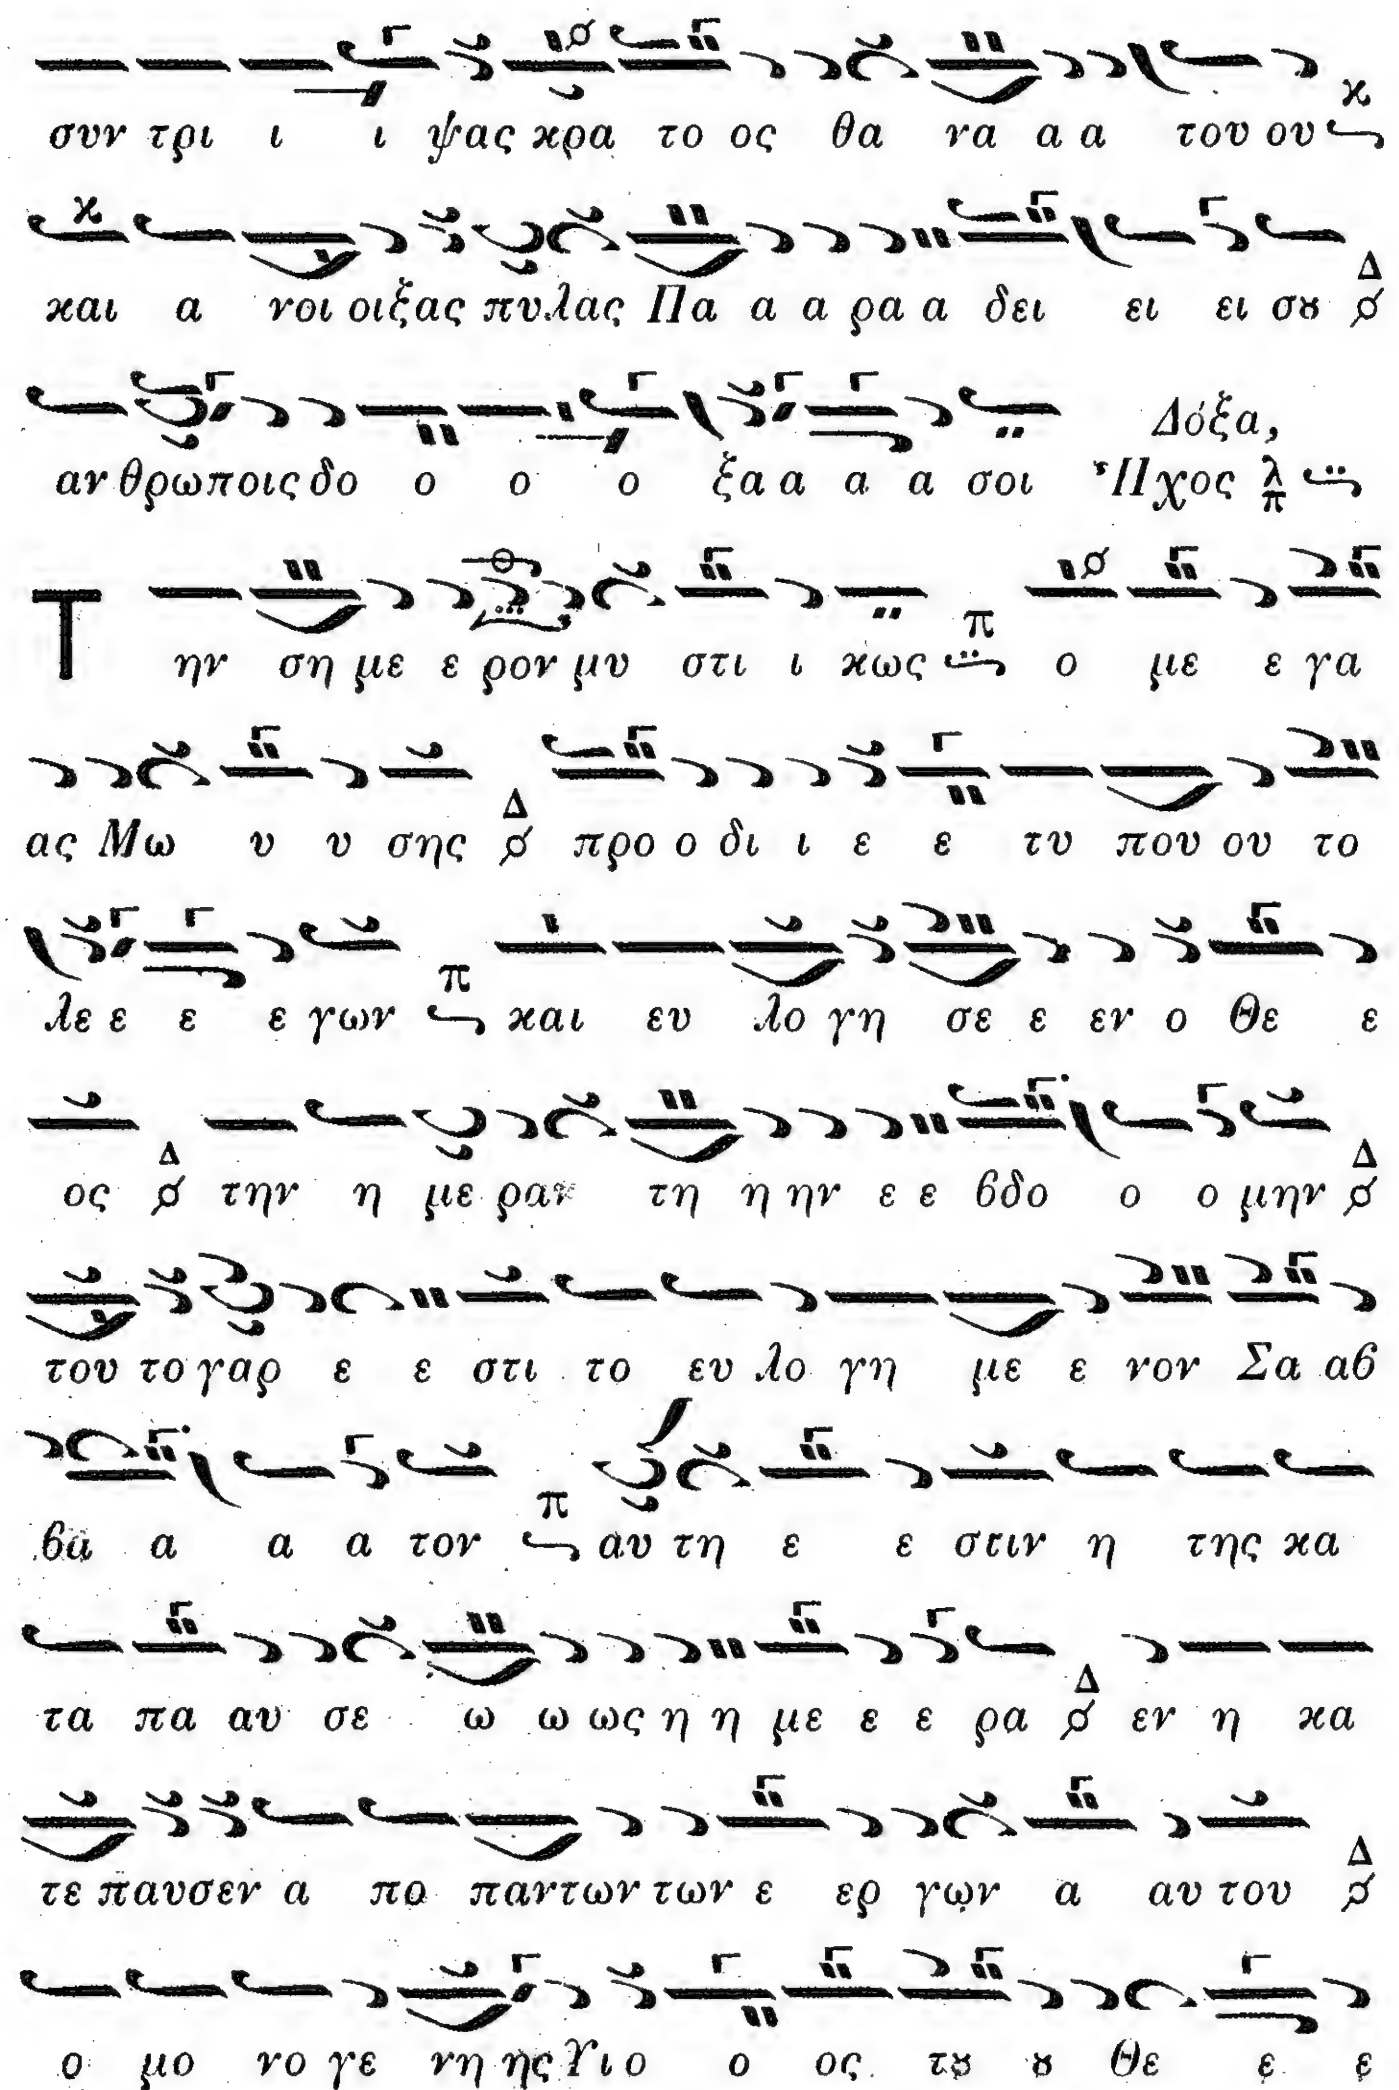 συν τρι ι ι ψας κρα το ος θα να α α του ου
και α νοι οιξας πυλας Πα α α ρα α δει ει ει σȣ
αν θρωποις δο ο ο ο ξα α α α σοι Δόξα, Ἦχος λ π
Τ ην ση με ε ρον μυ στι ι κως π ο με ε γα
ας Μω υ υ σης Δ προ ο δι ι ε ε τυ που ου το
λε ε ε ε γων π και ευ λο γη σε ε εν ο Θε ε
ος Δ την η με ραν τη η ην ε ε βδο ο ο μην Δ
του το γαρ ε ε στι το ευ λο γη με ε νον Σα αβ
βα α α α τον π αυ τη ε ε στιν η της κα
τα πα αυ σε ω ω ως η η με ε ε ρα Δ εν η κα
τε παυσεν α πο παντων των ε ερ γων α αυ του Δ
ο μο νο γε νη ης Υι ο ο ος τȣ ȣ Θε ε ε